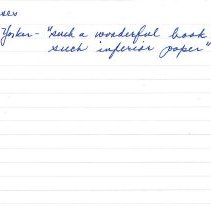 ses
Yorker - "such a wonderful book
such inferior paper"